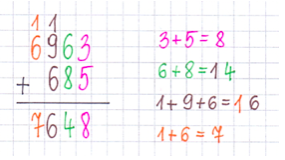 11
6963
+ 685
7648
3+5=8
6+8=14
1+9+6=16
1+6=7